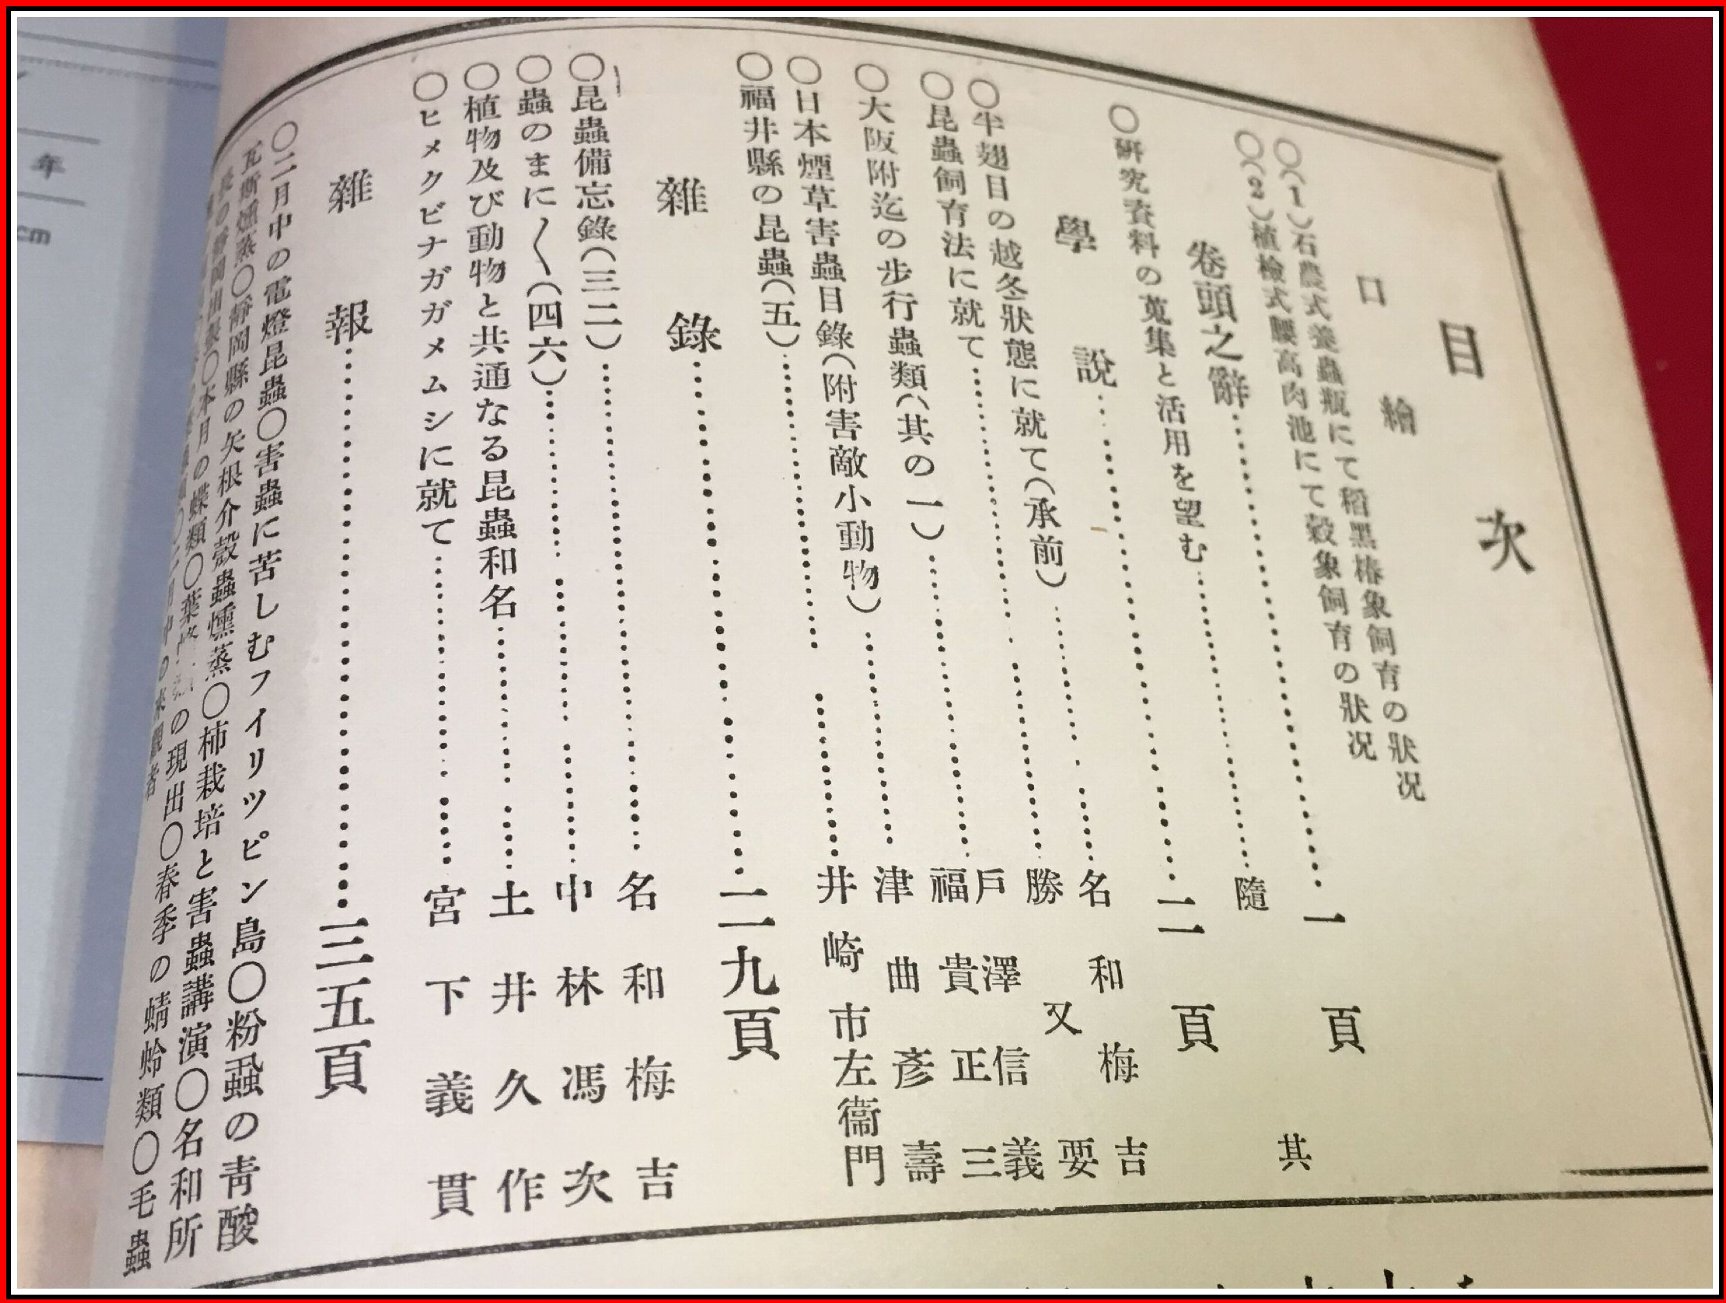 目次
口繪
○(1)石農式養蟲瓶にて稻黑椿象飼育の狀况
○(2)植檢式腰高肉池にて穀象飼育の狀况
卷頭之辭……………一頁
○硏究資料の蒐集と活用を望む……………隨其
學說……………二頁
○半翅目の越冬狀態に就て(承前)……………名和梅吉
○昆蟲飼育法に就て……………勝又要
○大阪附近の步行蟲類(其の一)……………戶澤信義 福貴正三
○日本煙草害蟲目錄(附害敵小動物)……………津曲彥壽
○福井縣の昆蟲(五)……………井崎市左衞門
雜錄……………二九頁
○昆蟲備忘錄(三二)……………名和梅吉
○蟲のまに〱(四六)……………中林馮次
○植物及び動物と共通なる昆蟲和名……………土井久作
○ヒメクビナガガメムシに就て……………宮下義貫
雜報……………三五頁
○二月中の電燈昆蟲○害蟲に苦しむフイリツピン島○粉蝨の靑酸
瓦斯燻蒸○靜岡縣の矢根介殼蟲燻蒸○柿栽培と害蟲講演○名和所
長の靜岡出張○本月の蝶類○葉の現出○春季の蜻蛉類○毛蟲
二月中の來觀者
年
cm